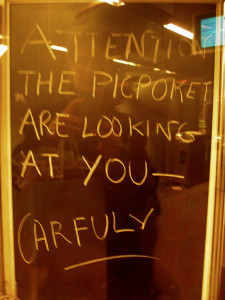 ATTENTION
THE PICPOKET
ARE LOOKING
AT YOU—
CARFULY